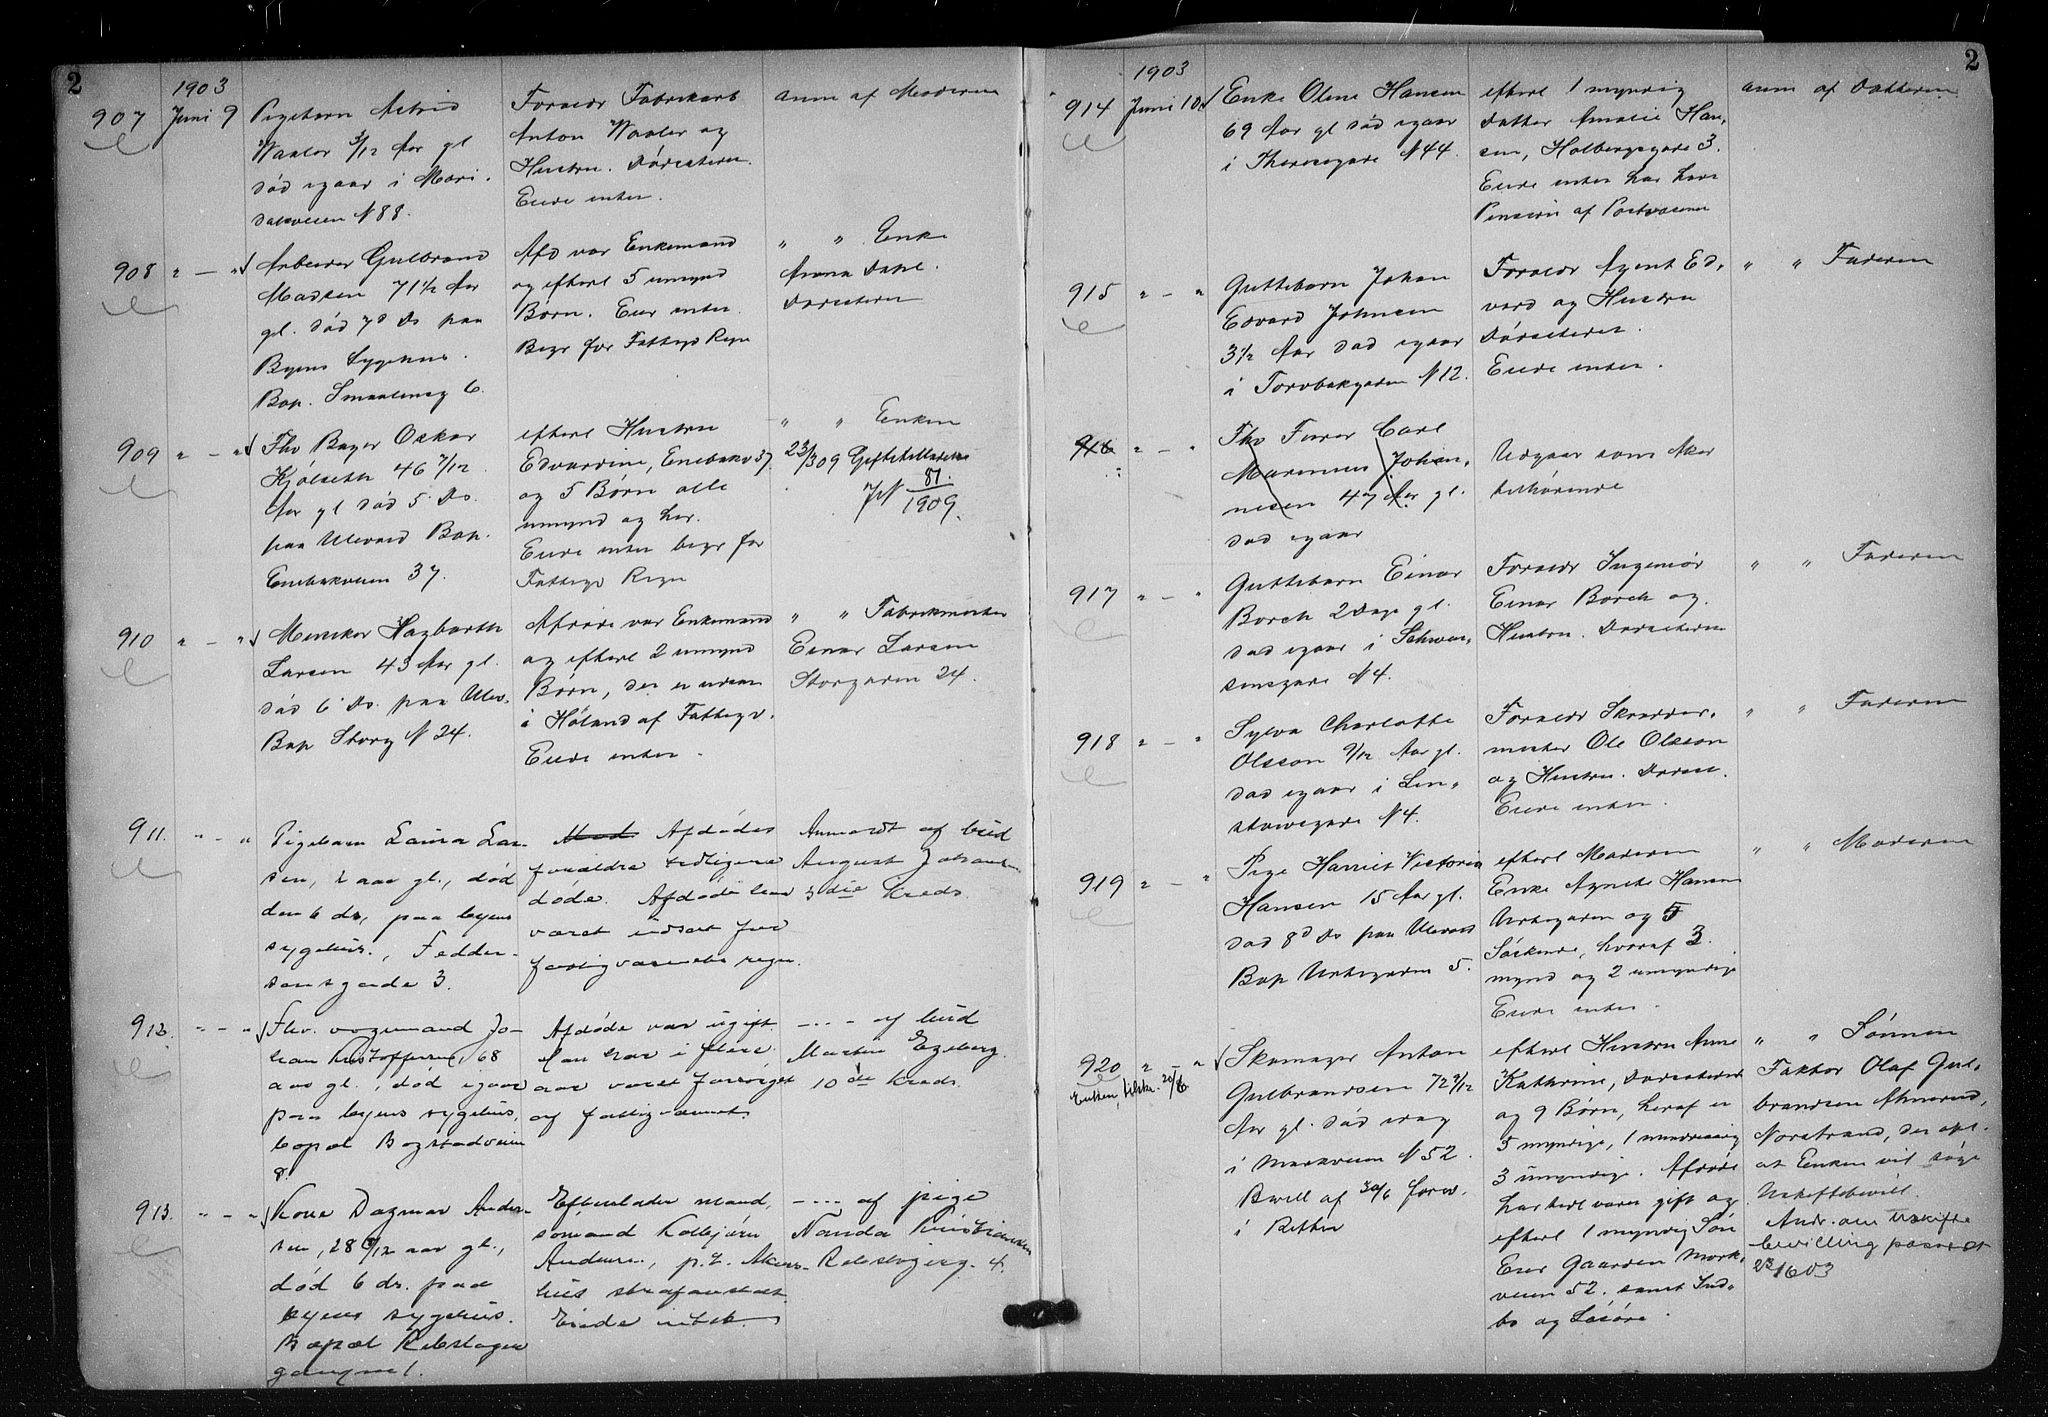 2
1903
907 Juni 9 Pigebarn Astrid
Waaler 3/12 Aar gl
død igaar i Mari-
dalsveien N 88.
Forældr Fabrikarb
Anton Waaler og
Hustru. Dødsatteren
Eiede intet.
anm af Moderen
908 " — " Arbeider Gulbrand
Madsen 71 1/2 Aar
gl. død 7d Ds paa
Byens Sygehus.
Bop. Smaalensg 6.
Afd var Enkemand
og efterl 5 umynd
Børn. Eier intet.
Begr for Fattigv Regn
" " Enke
Anna Dahl.
909 " — " Fhv Bager Oskar
Kjølseth 46 7/12
Aar gl død 5 Ds.
paa Ulevaal Bop.
Enebakveien 37.
efterl Hustru
Edvardine, Enebakv 37
og 5 Børn alle
umynd og her.
Eiede intet begr for
Fattigv Regn
" " Enken
23/3 09
JN 81/1909.
910 " — " Musiker Hagbarth
Larsen 43 Aar gl.
død 6 Ds. paa Ulev.
Bop Storg N 24.
Afdøde var Enkemand
og efterl 2 umynd
Børn, der er udsat
i Høland af Fattigv.
Eiede intet.
" " Fabrikmester
Einar Larsen
Storgaden 24.
911. " - " Pigebarn Laura Lar-
sen, 2 aar gl., død
den 6 ds, paa byens
sygehus., Fedder-
sensgade 3.
Afdødes
forældre tidligere
døde. Afdøde har
været udsat for
fattigvæsenets regn.
Anmeldt af bud
August Johansen
3die Kreds.
912. " - " Fhv. vognmand Jo-
han Kristoffersen, 68
aar gl., død igaar
paa byens sygehus,
bopæl Bogstadveien
8.
Afdøde var ugift.
Han har i flere
aar været forsørget
af fattigvæsenet.
- .... - af bud
Martin Egeberg
10de Kreds.
913. " - " Kone Dagmar Ander-
sen, 28 8/12 aar gl.,
død 6 ds. paa
byens sygehus.
Bopæl Rebslager
gangen 1.
Efterlader mand,
sømand Kolbjørn
Andersen, p.t. Akers-
hus strafanstalt.
Eiede intet.
- .... af pige
Nanda Kristiansen
Rebslagerg. 4.
2
1903
914 Juni 10 Enke Oline Hansen
69 Aar gl død igaar
i Theresegade N 44.
efterl 1 myndig
Datter Amalie Han-
sen, Holbergsgade 3.
Eiede intet har havt
Pension af Postvæsenet
anm af Datteren
915 " — " Guttebarn Johan
Edvard Johnsen
3 1/2 Aar død igaar
i Torvbakgaden N 12.
Forældr Agent Ed-
vard og Hustru
Eiede intet.
" " Faderen
916 " — " Fhv Furer Carl
Marinius Johan-
nesen 47 Aar gl.
død igaar
Udgaar som Aker
tilhørende
917 " — " Guttebarn Einar
Borch 2 Dage gl.
død igaar i Schwen-
sensgade N 4.
Forældr Ingeniør
Einar Borch og
Hustru.
" " Faderen
918 " — " Sylva Charlotte
Olsson 9/12 Aar gl.
død igaar i Lin-
stowsgade N 4.
Forældr Skrædder-
mester Ole Olsson
og Hustru.
Eiede intet.
" " Faderen
919 " — " Pige Harriet Victoria
Hansen 15 Aar gl.
død 8d Ds paa Ulevaal
Bop Urtegaden 5.
efterl Moderen
Enke Agnethe Hansen
Urtegaden og 5
Søskende, hvoraf 3
mynd og 2 umyndige
Eiede intet.
" " Moderen
920 " — " Skomager Anton
Gulbrandsen 72 3/12
Aar gl. død idag
i Markveien N 52.
Bevill af 30/6 forev.
i Retten
Enken, tilskr. 20/6
efterl Hustru Anne
Kathrine,
og 9 Børn, heraf er
5 myndige, 1 mindreaarig
3 umyndige. Afdøde
har før været gift og
efterl 1 myndig Søn
Eier Gaarden Mark-
veien 52. samt Ind-
bo og Løsøre.
" " Sønnen
Faktor Olaf Gul-
brandsen Almerud,
Nordstrand, der opl.
at Enken vil søge
Uskiftebevill.
Andr. om uskifte
bevilling